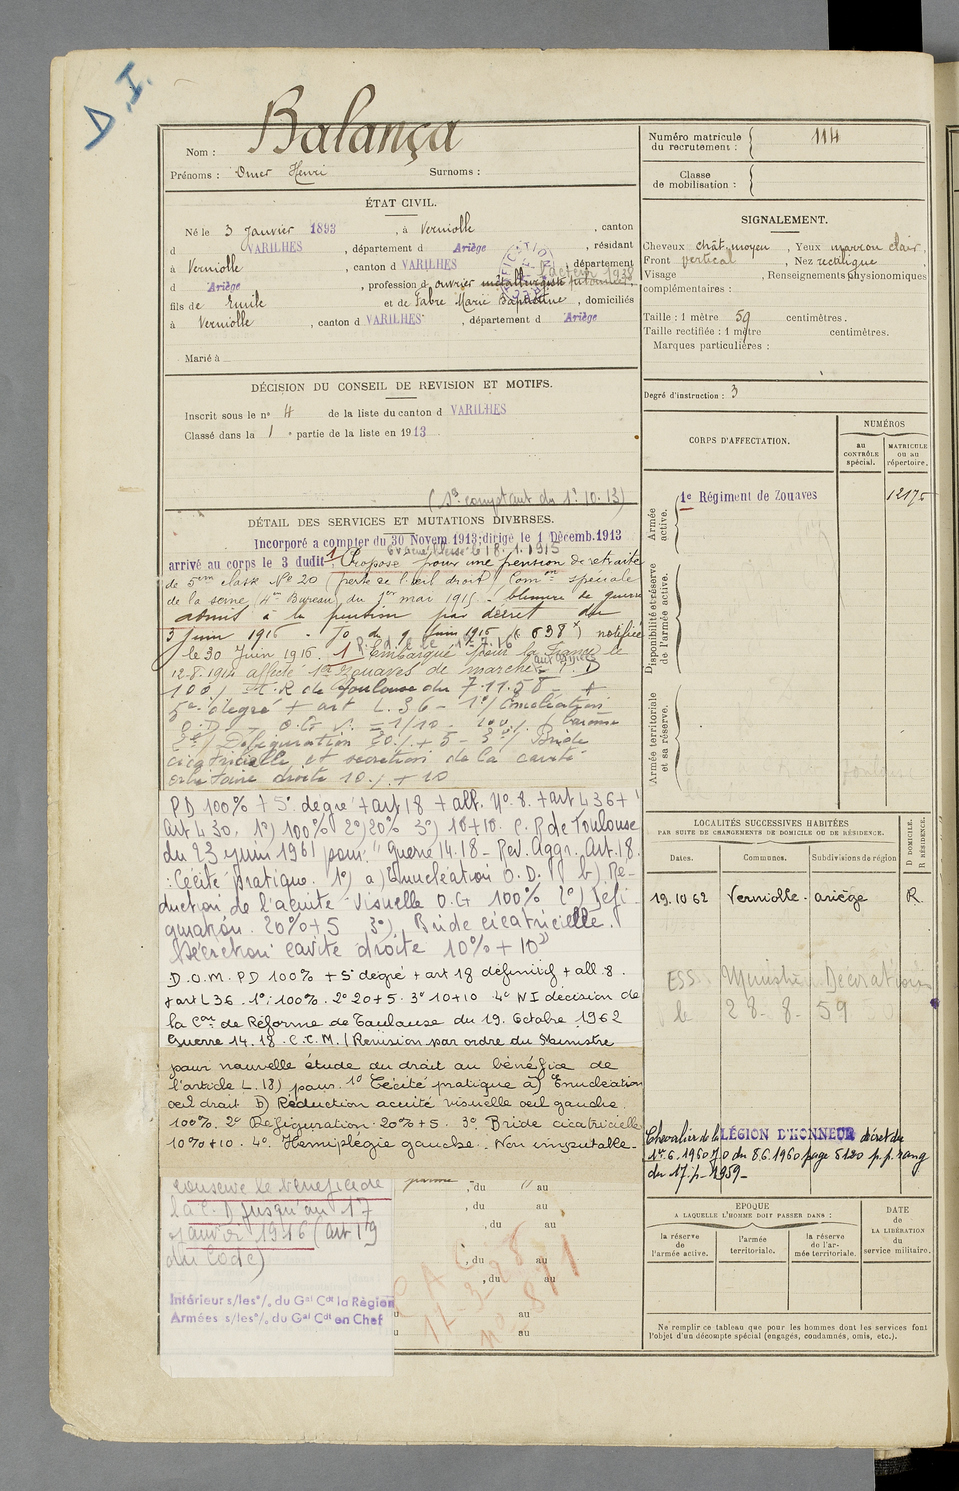 D.I.
Nom : Balança
Prénoms : Omer Henri Surnoms :
ÉTAT CIVIL.
Né le 3 Janvier 1893, à Verniolle, canton
d VARILHES, département d Ariège, résidant
à Verniolle, canton d VARILHES, département
d Ariège, profession d ouvrier métallurgiste facteur 1938
fils de Emile et de Fabre Marie Baptistine, domiciliés
à Verniolle, canton d VARILHES, département d Ariège
Marié à
DÉCISION DU CONSEIL DE REVISION ET MOTIFS.
Inscrit sous le n° 4 de la liste du canton d VARILHES
Classé dans la 1e partie de la liste en 1913
(Sce comptant du 1. 10. 13)
DÉTAIL DES SERVICES ET MUTATIONS DIVERSES.
Incorporé a compter du 30 Novem. 1913; dirigé le 1 Décemb. 1913
le 18.1.1915
arrivé au corps le 3 dudit. Proposé pour une pension de retraite
de 5me classe No 20 (perte de l'œil droit) Comon spéciale
de la seine (4e Bureau) du 1er mai 1915 - blessure de guerre
admis à la pension par décret du
3 Juin 1916 - JO du 9 Juin 1916 (6 638 f) notifiée
le 30 Juin 1916. Embarqué pour la France le
12.8.1914 affecté 1er zouaves de marche aux armées P.D
100% C.R de Toulouse du 7.11.58 +
5e degré + art L.36 - 1°) Enucléation
O.D - O.G V. = 1/10 - 100%
2°) Défiguration 20% + 5 - 3°) Bride
cicatricielle et secretion de la cavité
orbitaire droite 10% + 10
PD 100% + 5° degré + art 18 + all. No. 8. + art 436 +
art 430. 1°) 100% 2°) 20% 3°) 10+10. C.R de Toulouse
du 23 juin 1961 pour " Guerre 14.18 - Rev. Aggr. Art. 18.
: Cécité pratique. 1°) a) Enucléation O.D. b) Ré-
duction de l'acuité visuelle O.G 100% 2°) Défi-
guration. 20% + 5 3°) Bride cicatricielle.
Sécrétion cavité droite 10% + 10"
D.O.M. PD 100% + 5° degré + art 18 définitif + all. 8.
+ art L36. 1°: 100%. 2° 20+5. 3° 10+10 4° NI décision de
la Con de Réforme de Toulouse du 19. Octobre 1962
Guerre 14.18. C.C.M. (Révision par ordre du Ministre
pour nouvelle étude du droit au bénéfice de
l'article L.18) pour. 1° Cécité pratique a) Enucléation
œil droit b) Réduction acuité visuelle œil gauche.
100%. 2° Défiguration. 20% + 5. 3° Bride cicatricielle
10% + 10. 4° Hemiplégie gauche. Non imputable.
conserve le bénéfice de
la C. D jusqu'au 17
janvier 1946 (art 19
du Code)
Intérieur s/les o/. du Gal Cdt la Région
Armées s/les o/. du Gal Cdt en Chef
, du au
, du au
, du au
, du au
, du au
au
au
C A C
17-3-28
n° 871
Numéro matricule du recrutement : 114
Classe de mobilisation :
SIGNALEMENT.
Cheveux chât. moyen, Yeux marron clair,
Front vertical, Nez rectiligne,
Visage , Renseignements physionomiques
complémentaires :
Taille : 1 mètre 59 centimètres.
Taille rectifiée : 1 mètre centimètres.
Marques particulières :
Degré d'instruction : 3
CORPS D'AFFECTATION.
NUMÉROS
au CONTRÔLE spécial.
MATRICULE ou au répertoire.
Armée active.
1e Régiment de Zouaves 12175
Disponibilité et réserve de l'armée active.
Armée territoriale et sa réserve.
LOCALITÉS SUCCESSIVES HABITÉES
PAR SUITE DE CHANGEMENTS DE DOMICILE OU DE RÉSIDENCE.
D DOMICILE. R RÉSIDENCE.
Dates. Communes. Subdivisions de région
19.10 62 Verniolle. ariège R
ESS. Ministère Décorations
le 28-8-59
Chevalier de la LÉGION D'HONNEUR décret du
1er.6.1960 JO du 8.6.1960 page 5120 p.p. rang
du 17.7.1959-
EPOQUE
A LAQUELLE L'HOMME DOIT PASSER DANS :
DATE de LA LIBÉRATION du service militaire.
la réserve de l'armée active.
l'armée territoriale.
la réserve de l'armée territoriale.
Ne remplir ce tableau que pour les hommes dont les services font
l'objet d'un décompte spécial (engagés, condamnés, omis, etc.).